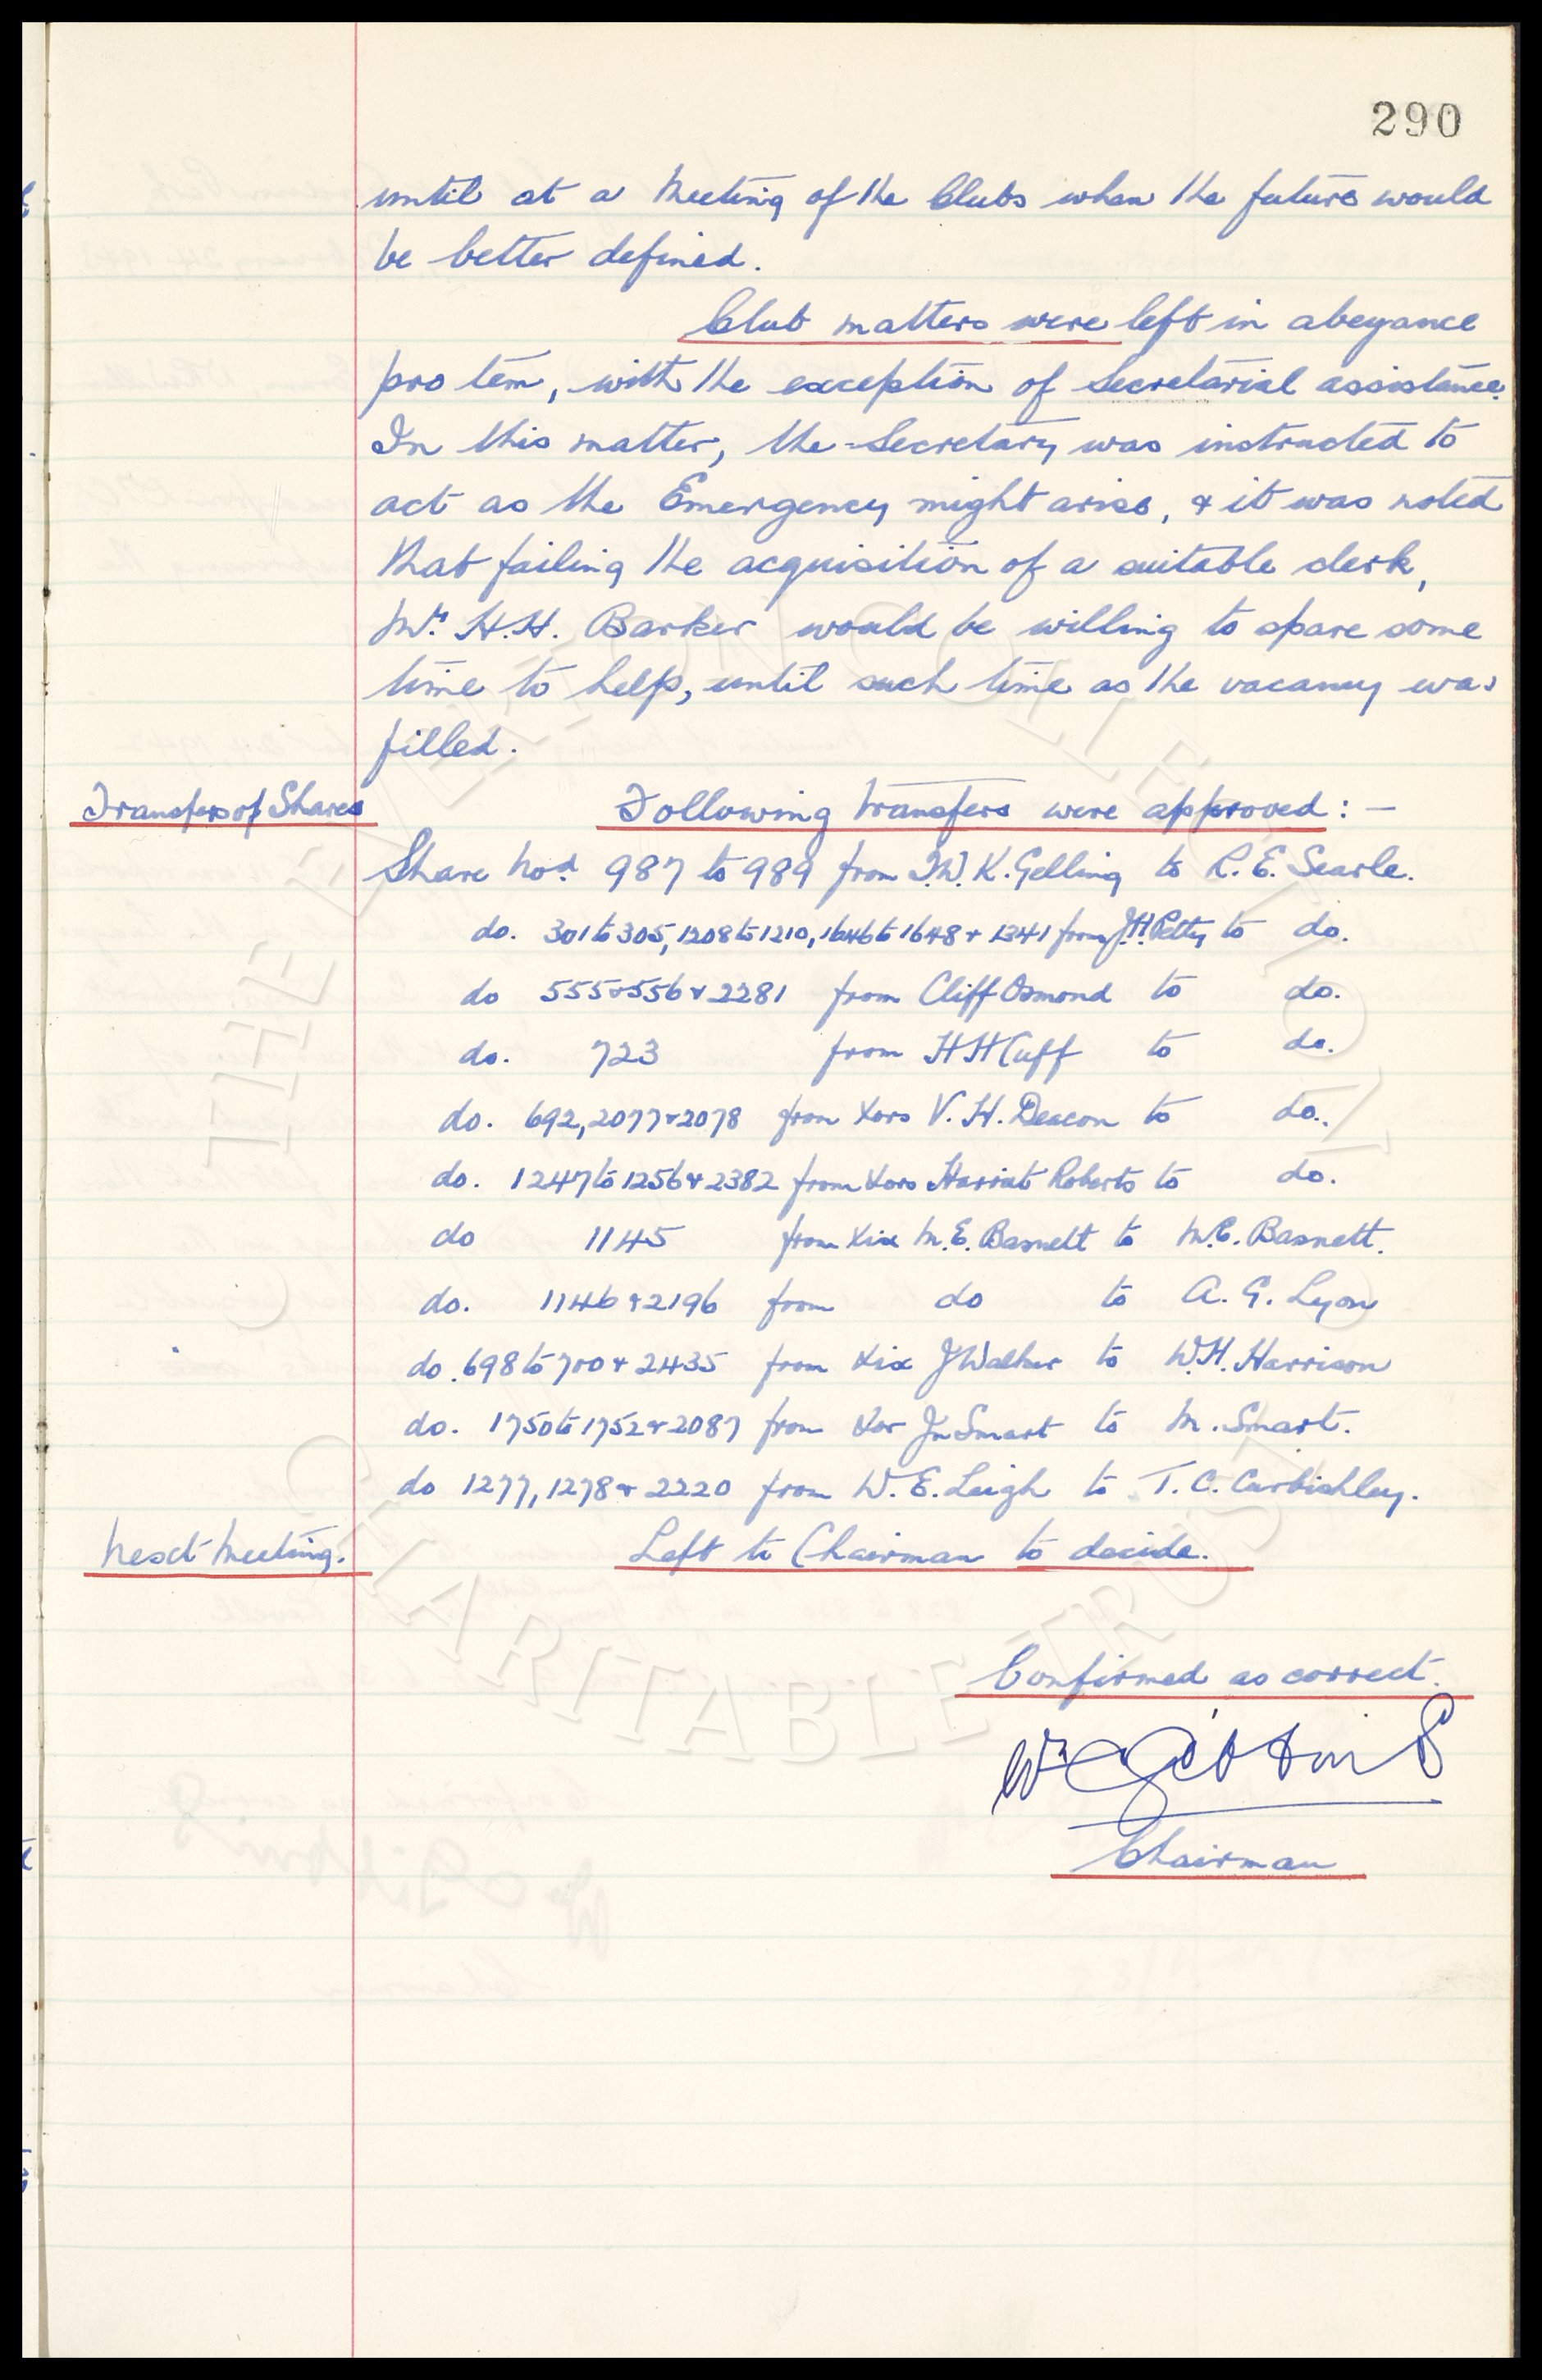 290
until at a Meeting of the Clubs when the future would
be better defined.
Club matters were left in abeyance
pro tem, with the exception of Secretarial assistance.
In this matter, the Secretary was instructed to
act as the Emergency might arise, & it was noted
that failing the acquisition of a suitable clerk,
Mr. H.H. Barker would be willing to spare some
time to help, until such time as the vacancy was
filled.
Transfers of Shares
Following transfers were approved: -
Share Nos. 987 to 989 from T.W.K. Gelling to R.E. Searle.
do. 301 to 305, 1208 to 1210, 1646 to 1648 & 1341 from J.H. Petty to do.
do 555 & 556 & 2281 from Cliff Osmond to do.
do. 723 from H H Cuff to do.
do. 692, 2077 & 2078 from Xors V.H. Deacon to do.
do. 1247 to 1256 & 2382 from Xors Harriet Roberts to do.
do 1145 from Xix M.E. Basnett to M.E. Basnett.
do. 1146 & 2196 from do to A.G. Lyon
do. 698 to 700 & 2435 from Xix J Walker to W.H. Harrison
do. 1750 to 1752 & 2087 from Xor Jn Smart to M. Smart.
do 1277, 1278 & 2220 from W.E. Leigh to T.C. Curbishley.
Next Meeting.
Left to Chairman to decide.
Confirmed as correct.
Wm C Gibbins
Chairman
© THE EVERTON COLLECTION
CHARITABLE TRUST